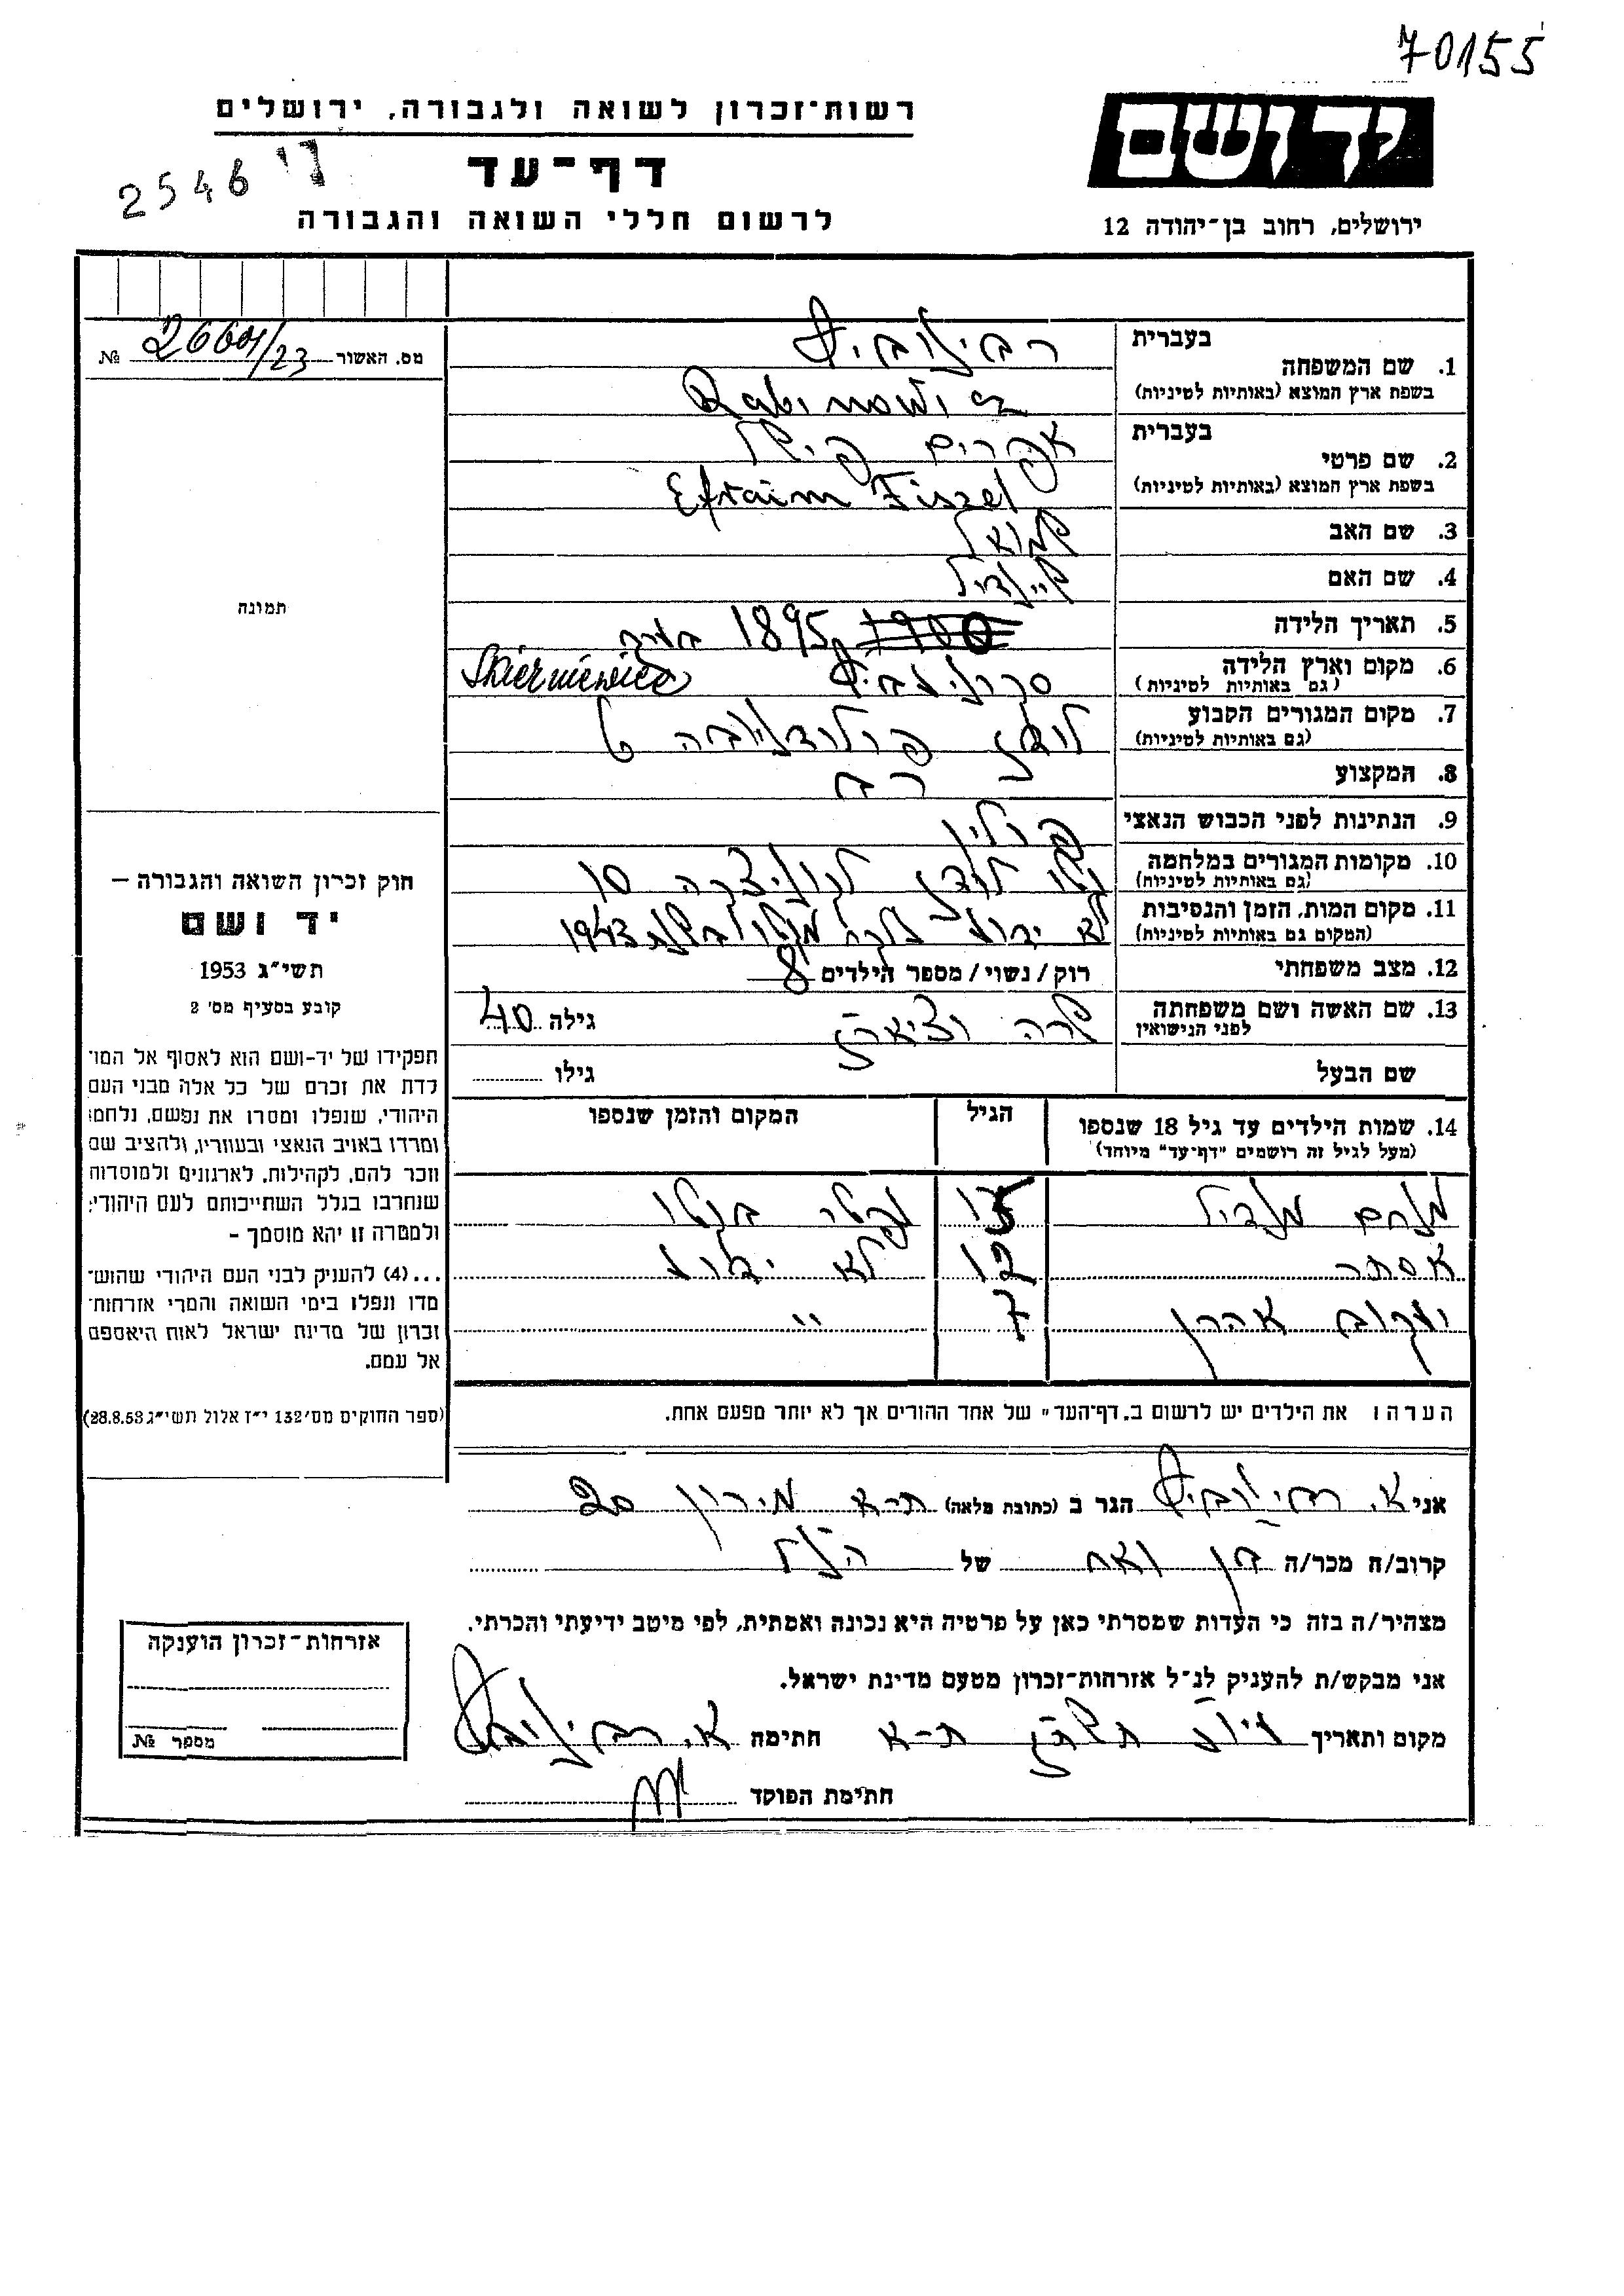 70155
רשות־זכרון לשואה ולגבורה, ירושלים
יד ושם
דף־עד
2546
לרשום חללי השואה והגבורה
ירושלים, רחוב בן־יהודה 12
מס. האשור № 2660/23
בעברית רבינוביץ
1. שם המשפחה
בשפת ארץ המוצא (באותיות לטיניות) Rabinowicz
בעברית אפרים פישל
2. שם פרטי
בשפת ארץ המוצא (באותיות לטיניות) Efraim Fiszel
3. שם האב שמואל
4. שם האם שיינדיל
5. תאריך הלידה 1900 1895 בערך
6. מקום וארץ הלידה Skierniewice
(גם באותיות לטיניות)
7. מקום המגורים הקבוע לודז
(גם באותיות לטיניות)
8. המקצוע רב
9. הנתינות לפני הכבוש הנאצי פולין
10. מקומות המגורים במלחמה גטו לודז 10
(גם באותיות לטיניות)
11. מקום המות, הזמן והנסיבות לא ידוע בשנת 1943
(המקום גם באותיות לטיניות)
12. מצב משפחתי רוק / נשוי / מספר הילדים 8
13. שם האשה ושם משפחתה שרה גילה 40
לפני הנישואין
שם הבעל גילו
תמונה
חוק זכרון השואה והגבורה –
יד ושם
תשי״ג 1953
קובע בסעיף מס' 2
תפקידו של יד-ושם הוא לאסוף אל המו־
לדת את זכרם של כל אלה מבני העם
היהודי, שנפלו ומסרו את נפשם, נלחמו
ומרדו באויב הנאצי ובעוזריו, ולהציב שם
וזכר להם, לקהילות, לארגונים ולמוסדות
שנחרבו בגלל השתייכותם לעם היהודי;
ולמטרה זו יהא מוסמך –
...(4) להעניק לבני העם היהודי שהוש־
מדו ונפלו בימי השואה והמרי אזרחות־
זכרון של מדינת ישראל לאות היאספם
אל עמם.
(ספר החוקים מס' 132 י״ז אלול תשי״ג 28.8.53)
14. שמות הילדים עד גיל 18 שנספו הגיל המקום והזמן שנספו
(מעל לגיל זה רושמים "דף־עד" מיוחד)
מנחם מנדיל 15 בגטו
אסתר 12 לא ידוע
יעקוב אהרן 7 "
הערה: את הילדים יש לרשום ב„דף־העד" של אחד ההורים אך לא יותר מפעם אחת.
אני א. רבינוביץ הגר ב (כתובת מלאה) ת-א מירון 20
קרוב/ה מכר/ה בן ואח של הנ״ל
מצהיר/ה בזה כי העדות שמסרתי כאן על פרטיה היא נכונה ואמתית, לפי מיטב ידיעתי והכרתי.
אני מבקש/ת להעניק לנ״ל אזרחות־זכרון מטעם מדינת ישראל.
מקום ותאריך ת-א חתימה א. רבינוביץ
חתימת הפוקד
אזרחות־זכרון הוענקה
מספר №